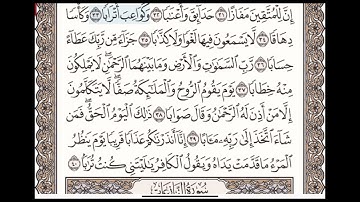 إِنَّ لِلْمُتَّقِينَ مَفَازًا ٣١ حَدَآئِقَ وَأَعْنَٰبًا ٣٢ وَكَوَاعِبَ أَتْرَابًا ٣٣ وَكَأْسًا
دِهَاقًا ٣٤ لَّا يَسْمَعُونَ فِيهَا لَغْوًا وَلَا كِذَّٰبًا ٣٥ جَزَآءً مِّن رَّبِّكَ عَطَآءً
حِسَابًا ٣٦ رَّبِّ ٱلسَّمَٰوَٰتِ وَٱلْأَرْضِ وَمَا بَيْنَهُمَا ٱلرَّحْمَٰنِ لَا يَمْلِكُونَ
مِنْهُ خِطَابًا ٣٧ يَوْمَ يَقُومُ ٱلرُّوحُ وَٱلْمَلَٰٓئِكَةُ صَفًّا لَّا يَتَكَلَّمُونَ
إِلَّا مَنْ أَذِنَ لَهُ ٱلرَّحْمَٰنُ وَقَالَ صَوَابًا ٣٨ ذَٰلِكَ ٱلْيَوْمُ ٱلْحَقُّ فَمَن
شَآءَ ٱتَّخَذَ إِلَىٰ رَبِّهِۦ مَـَٔابًا ٣٩ إِنَّآ أَنذَرْنَٰكُمْ عَذَابًا قَرِيبًا يَوْمَ يَنظُرُ
ٱلْمَرْءُ مَا قَدَّمَتْ يَدَاهُ وَيَقُولُ ٱلْكَافِرُ يَٰلَيْتَنِى كُنتُ تُرَٰبًۢا ٤٠
سُورَةُ ٱلنَّازِعَاتِ